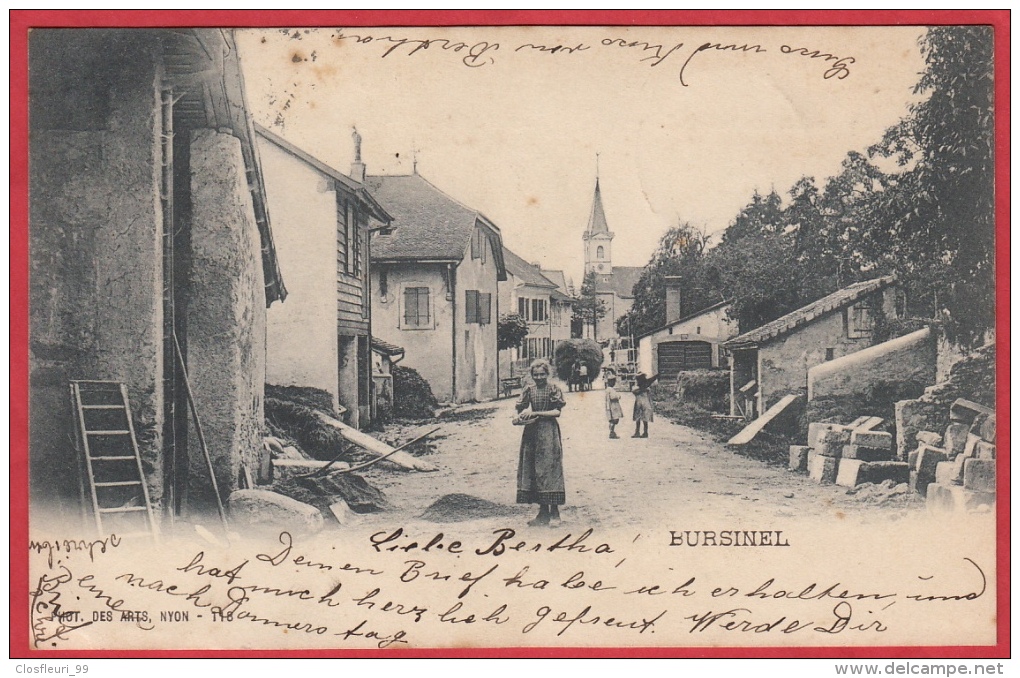 Liebe Bertha!
BURSINEL
Deinen Brief habe ich erhalten, und
hat mich herzlich gefreut. Werde Dir
nach Donnerstag
eine
PHOT. DES ARTS, NYON - 118
Gruss und Kuss von Bertha
Closfleuri_99
http://www.delcampe.net